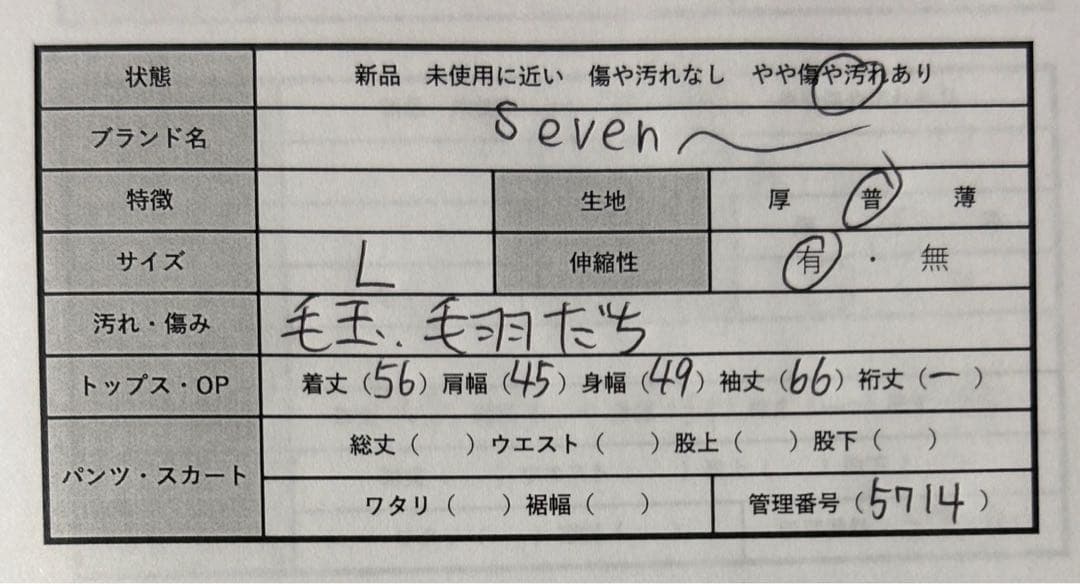 状態 新品 未使用に近い 傷や汚れなし やや傷や汚れあり
ブランド名 seven
特徴 生地 厚 普 薄
サイズ L 伸縮性 有 ・ 無
汚れ・傷み 毛玉、毛羽だち
トップス・OP 着丈（56）肩幅（45）身幅（49）袖丈（66）裄丈（ー）
パンツ・スカート 総丈（ ）ウエスト（ ）股上（ ）股下（ ）
ワタリ（ ）裾幅（ ） 管理番号（5714）